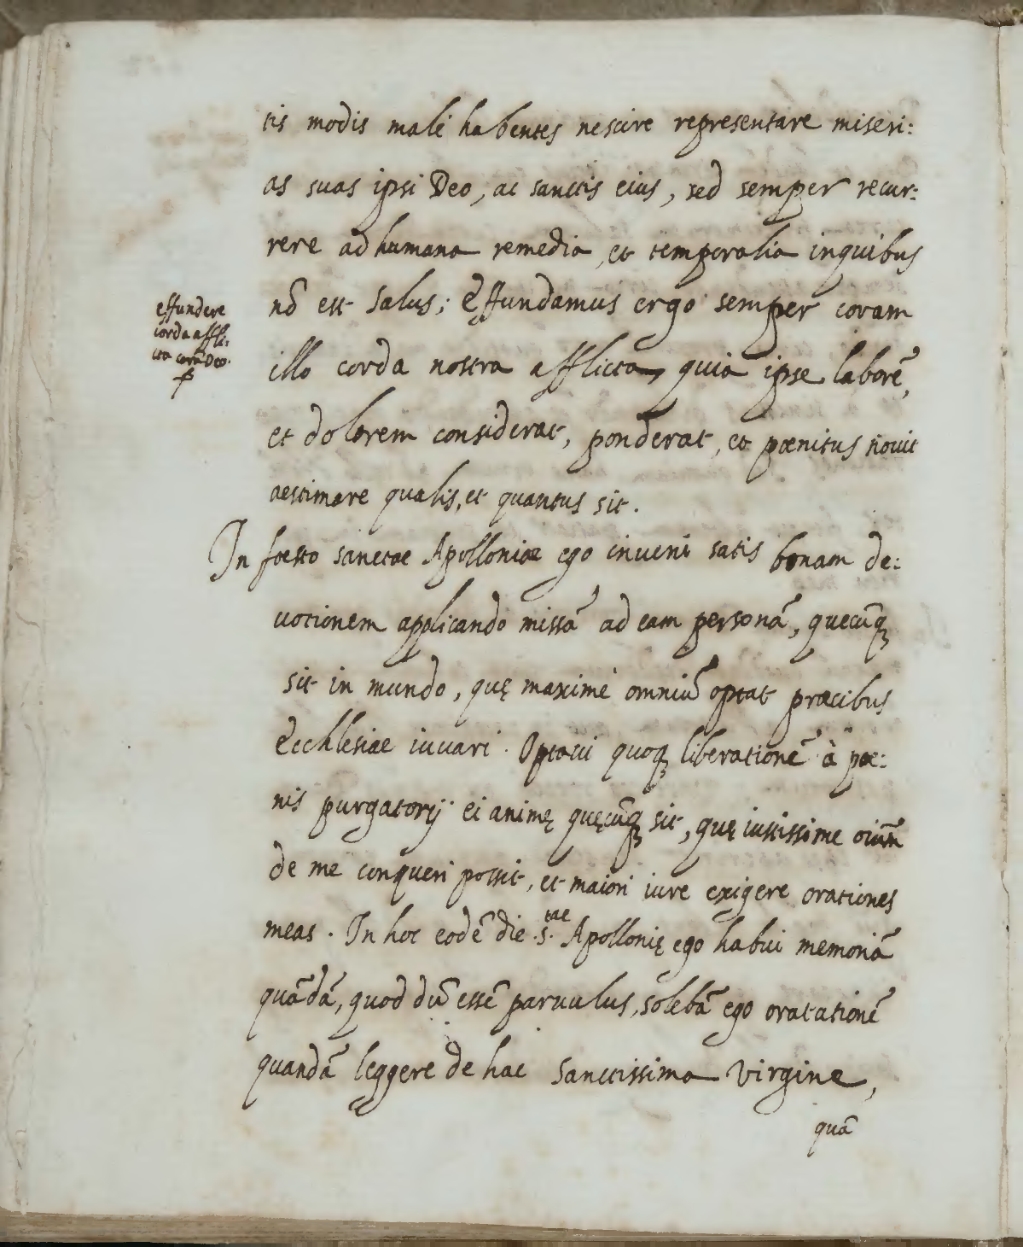 tis modis malè habentes nescire representare miseri:
as suas ipsi Deo, ac sanctis eius, sed semper recur:
rere ad humana remedia, et temporalia in quibus
nō est salus; Effundamus ergo semper coram
effundere
corda affli:
cta corā Deo.
illo corda nostra afflicta, quia ipse laborē,
et dolorem considerat, ponderat, et poenitus novit
aestimare qualis, et quantus sit.
In foesto sanctae Apolloniae ego inveni satis bonam de:
uotionem applicando missā ad eam personā, quecūq
sit in mundo, quę maximè omniū optat praecibus
Ecchlesiae iuvari. Optavi quoq liberationē à poe:
nis purgatorij ei animę quęcūq sit, quę iustissime oiūm
de me conqueri possit, et maiori iure exigere orationes
meas. In hoc eodē die S.tae Apollonię ego habui memoriā
quādā, quod dū essē parvulus, solebā ego oratationē
quandā leggere de hac Sanctissima Virgine,
quā